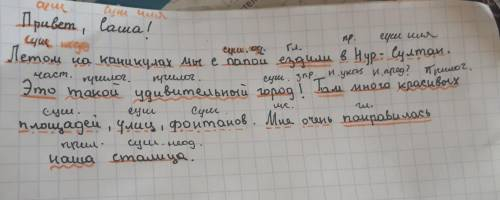 сущ сущ имя
Привет, Саша!
сущ неод сущ. од. гл. пр. сущ имя
Летом на каникулах мы с папой ездили в Нур-Султан.
част. прилог. прилог. сущ. прилог.
Это такой удивительный город! Там много красивых
сущ. сущ. сущ. гл.
площадей, улиц, фонтанов. Мне очень понравилась
прил. сущ. неод.
наша столица.